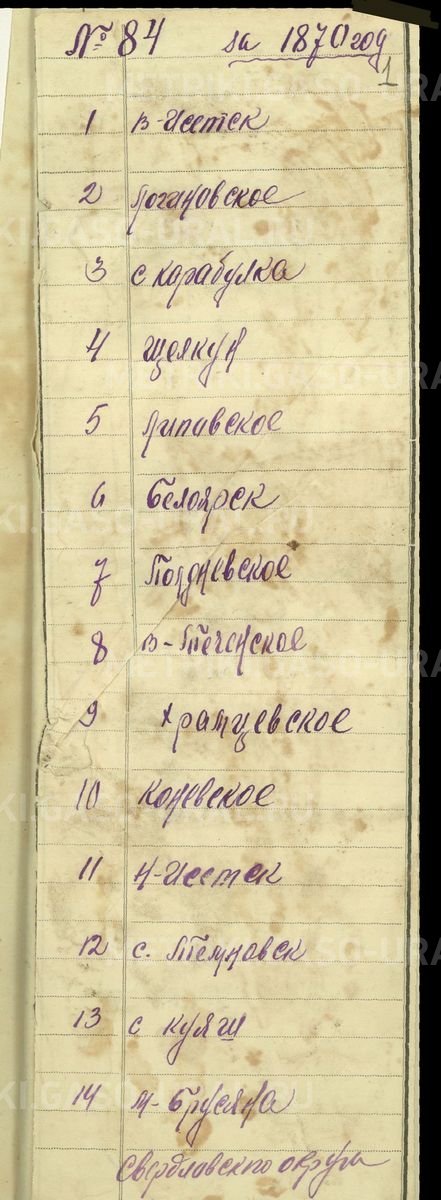 № 84 за 1870 год
1
1 В-Исетск
2 Логиновское
3 с карабулка
4 Щелкун
5 Липавское
6 Белоярск
7 Полдневское
8 В-Теченское
9 Храмцевское
10 Коневское
11 Н-Исетск
12 с. Темновск
13 с куяш
14 М-Брусяна
Свердловского округа